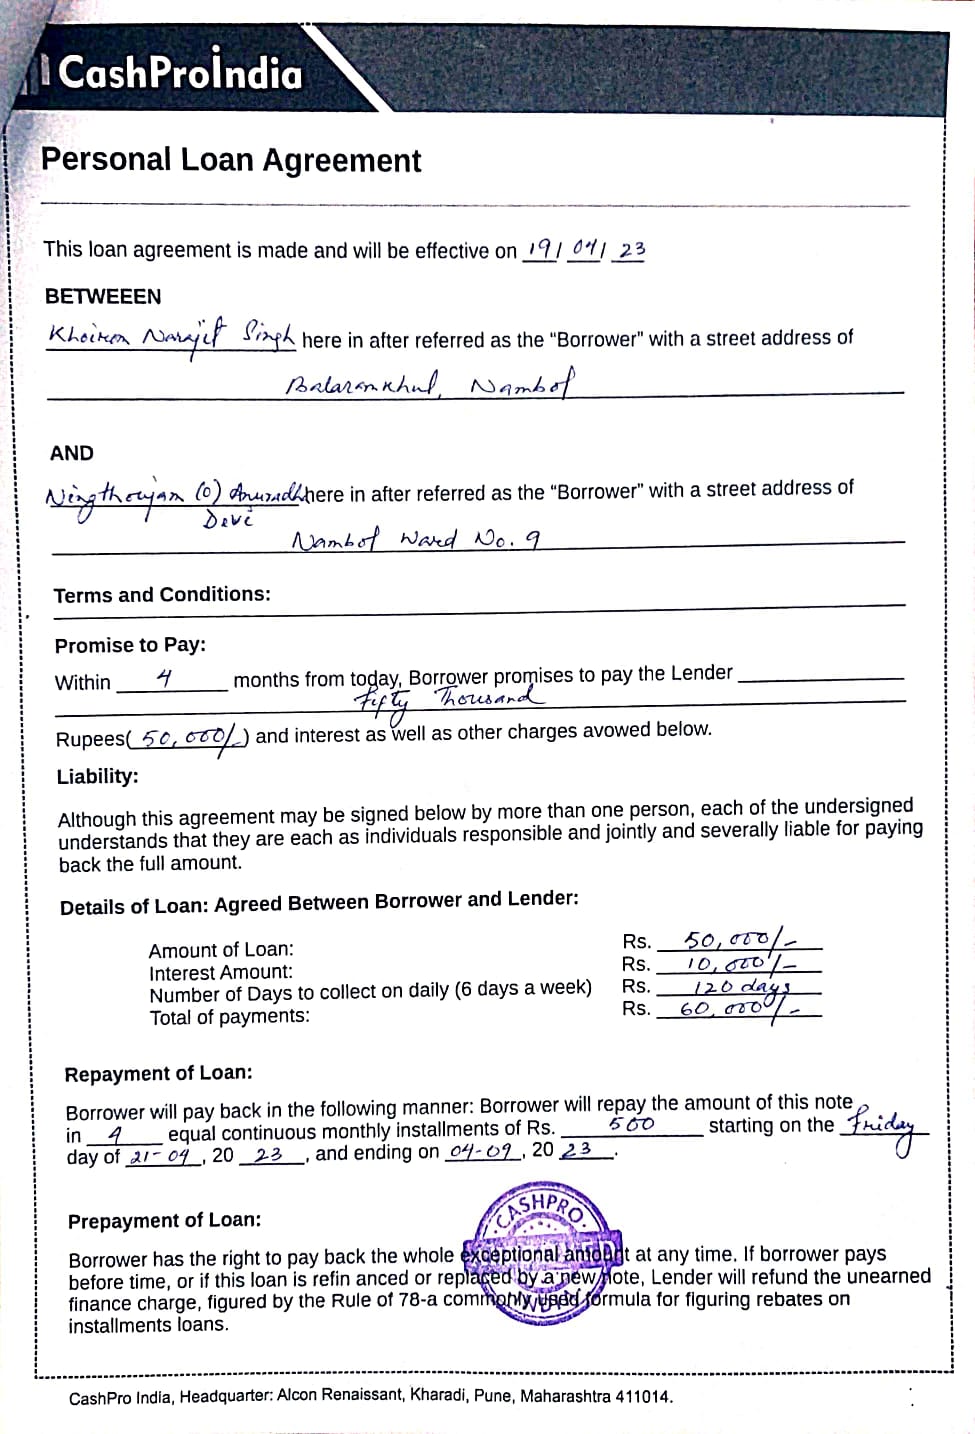 CashProIndia
Personal Loan Agreement
This loan agreement is made and will be effective on 19/ 04/ 23
BETWEEEN
Khoirom Narajit Singh here in after referred as the "Borrower" with a street address of
Balaramkhul, Nambol
AND
Ningthoujam (O) Anuradha here in after referred as the "Borrower" with a street address of
Devi
Nambol Ward No. 9
Terms and Conditions:
Promise to Pay:
Within 4 months from today, Borrower promises to pay the Lender
Fifty Thousand
Rupees( 50,000/-) and interest as well as other charges avowed below.
Liability:
Although this agreement may be signed below by more than one person, each of the undersigned
understands that they are each as individuals responsible and jointly and severally liable for paying
back the full amount.
Details of Loan: Agreed Between Borrower and Lender:
Amount of Loan: Rs. 50,000/-
Interest Amount: Rs. 10,000/-
Number of Days to collect on daily (6 days a week) Rs. 120 days
Total of payments: Rs. 60,000/-
Repayment of Loan:
Borrower will pay back in the following manner: Borrower will repay the amount of this note
in 4 equal continuous monthly installments of Rs. 500 starting on the Friday
day of 21-04, 20 23, and ending on 04-09, 20 23.
CASHPRO
Prepayment of Loan:
Borrower has the right to pay back the whole exceptional amount at any time. If borrower pays
before time, or if this loan is refin anced or replaced by a new note, Lender will refund the unearned
finance charge, figured by the Rule of 78-a commonly used formula for figuring rebates on
installments loans.
CashPro India, Headquarter: Alcon Renaissant, Kharadi, Pune, Maharashtra 411014.